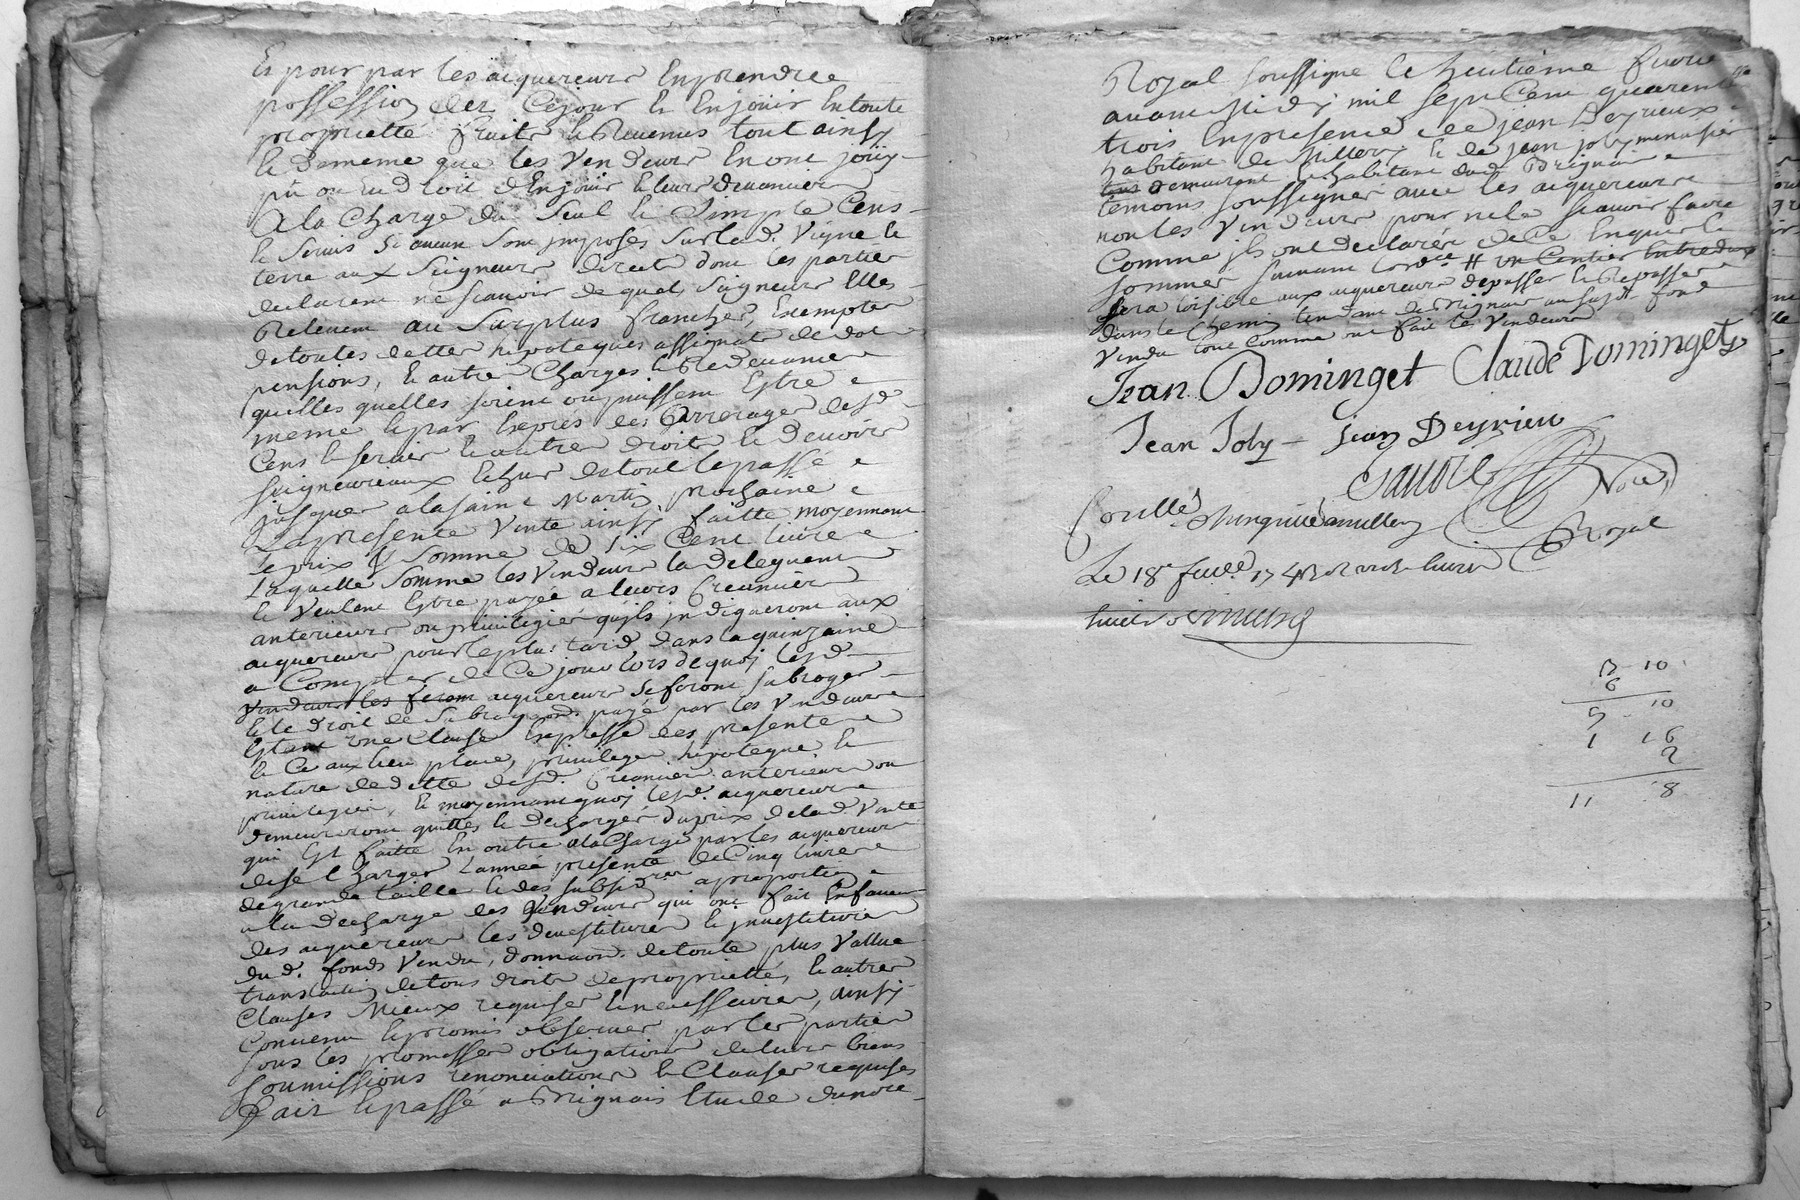 Et pour par les aiquereurs En prendre
possession dez Cejour Et Enjoüir Entoute
proprietté fruits Et Revenus tout ainsy
Et dememe que les Vendeurs En ont joüy
pû ou eu droit dEnjoüir Et leurs devanciers
A la Charge du Seul Et Simple Cens
Et Servis Si aucun Sont jmposés Surlad. Vigne Et
terre aux Seigneurs directs dont les parties
declarent ne scavoir de quels Seigneurs Elles
Relevent au Surplus franches, Exemptes
detoutes dettes hipoteques assignats de dot
pensions, Et autres Charges Et Redevances
quelles quelles soient ou puissent Estre
meme Et par Exprés des Arrerages desd.
Cens Et servis Et autres droits Et devoirs
Seigneuriaux Echus detout Lepassé
jusques alasaint Martin prochaine
La presente Vente ainsy faitte moyennant
Leprix & Somme de Six Cent livres
Laquelle Somme les Vendeurs la deleguent
Et Veulent Estre payée a leurs Creanciers
anterieurs ou privilegiés quils jndiqueront aux
aiquereurs pour leplus tard dans laquinzaine
a Compter de Ce jour lors dequoy lesd.
vendeurs les feront aiquereurs seferont subroger
Et le droit de Subrogaon. payé par les Vendeurs
Estant une Clause Expresse des presentes
Et Ce aux lieu place, privilege hipoteque Et
nature dedette desd. Creanciers anterieurs ou
privilegiés, Et moyennant quoy lesd. aiquereurs
demeureront quittes Et dechargés duprix delad. Vente
qui Est faitte En outre alaCharge par les aiquereurs
dese Charger Lannée presente de Cinq livres
degrande taille Et des subsides aproportion
ala decharge des Vendeurs qui ont fait Enfaveur
des aiquereurs les devestitures Et jnvestitures
du d. fonds Vendu, donnaon. detoute plus Vallue
translation detous droits depropriettés, Et autres
Clauses Mieux requises Et necessaires, ainsy
Convenu Et promis observer par les parties
sous les promesses obligations deleurs biens
soumissions renonciations Et Clauses requises
fait Et passé a Brignais Etude dunore
Royal soussigné le huitieme fevrier
avant midy mil sept Cent quarente
trois En presence de jean Deyrieux
habitant de Millery Et de jean joly menusier
demeurant Et habitant aud. Brignais
temoins soussignés avec les aiquereurs
non les Vendeurs pour ne le scavoir faire
Comme jls ont declarés de Ce Enquis Et
sommés suivant Lordce # un Centier Entredeux
sera loisible aux aiquereurs depasser Et Repasser
dans le Chemin tendant de Brignais au susd. fonds
Vendu tout comme ont fait les Vendeurs
Jean Dominget Claude Dominget
Jean Joly Jean Deyrieu
Nore
Royal
Conllé
Le 18e
12 10
6
9 10
1 16
2
11 8